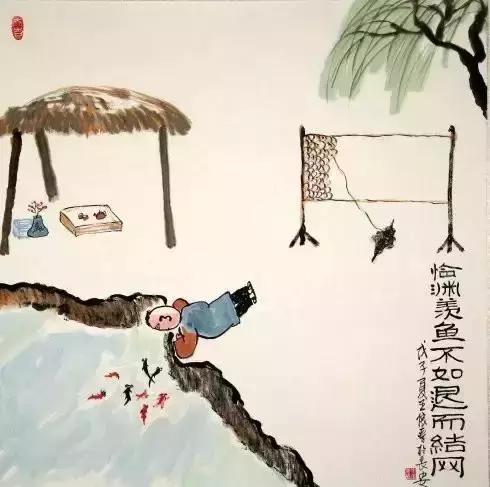 临渊羡鱼不如退而结网
戊子夏王俊于长安